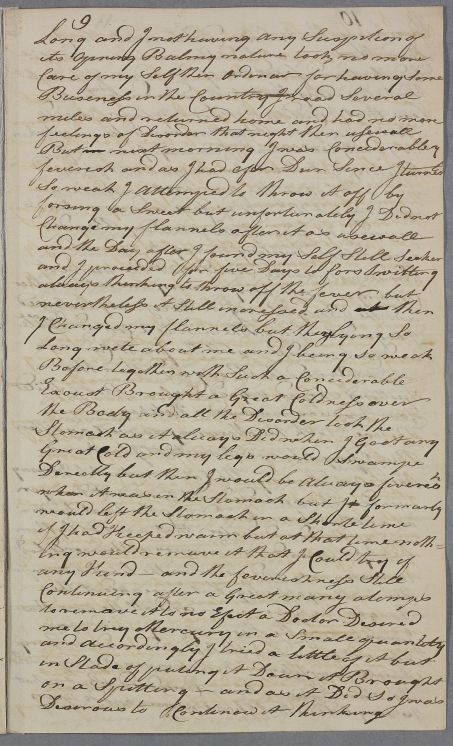 9
Long and I not having any Suspition of
its Opning Balmy nature took no more
Care of my Self then Ordenar for having Some
Buseness in the Country I road Several
miles and returned home and had no more
feelings of Disorder that night then usewall
But next morning I was Considerable
feverish and as I had Ever Dun Since I turned
So weak I Attempted to throw it off by
forsing a Sweet but unfortunately I Did not
Change my flannels after it as usewall
and the Day after I found my Self Still Seeker
and I proceeded for five Days to fors Swetting
always thinking to throw off the fever but
nevertheless it Still increased and then
I Changed my flannels but they lying So
Long wete about me and I being So weak
Before together with Such a Conciderable
Exoust Brought a Great Coldness over
the Body and all the Disorder took the
Stomach as it always Did when I Goot any
Great Cold and my legs would Swampe
Derectly but then I would be Always feveresh
when it was in the Stomach but It formarly
would left the Stomach in a Shorte time
if I had Keeped warm but at that time noth=
ing would remove it that I Could try of
any Kind — and the feverishness Still
Continuing after a Great many atemps
to remove it to no Efect a Doctor Desired
me to try Mercury in a Small quantity
and accordingly I tried a little of it but
in Stade of puting it Doune it Brought
on a Spitting — and as it Did So I was
Desirous to Continow it thinking